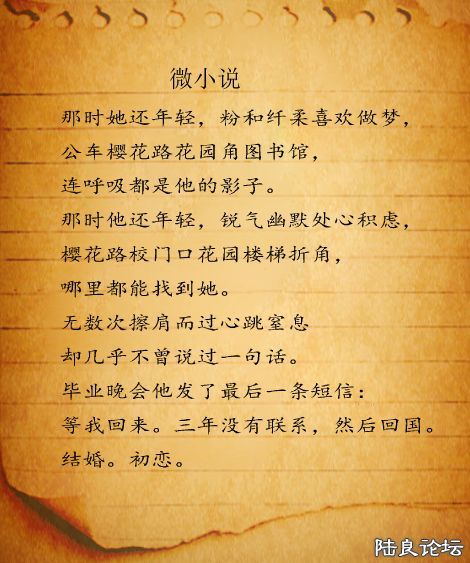 微小说
那时她还年轻，粉和纤柔喜欢做梦，
公车樱花路花园角图书馆，
连呼吸都是他的影子。
那时他还年轻，锐气幽默处心积虑，
樱花路校门口花园楼梯折角，
哪里都能找到她。
无数次擦肩而过心跳窒息
却几乎不曾说过一句话。
毕业晚会他发了最后一条短信：
等我回来。三年没有联系，然后回国。
结婚。初恋。
陆良论坛